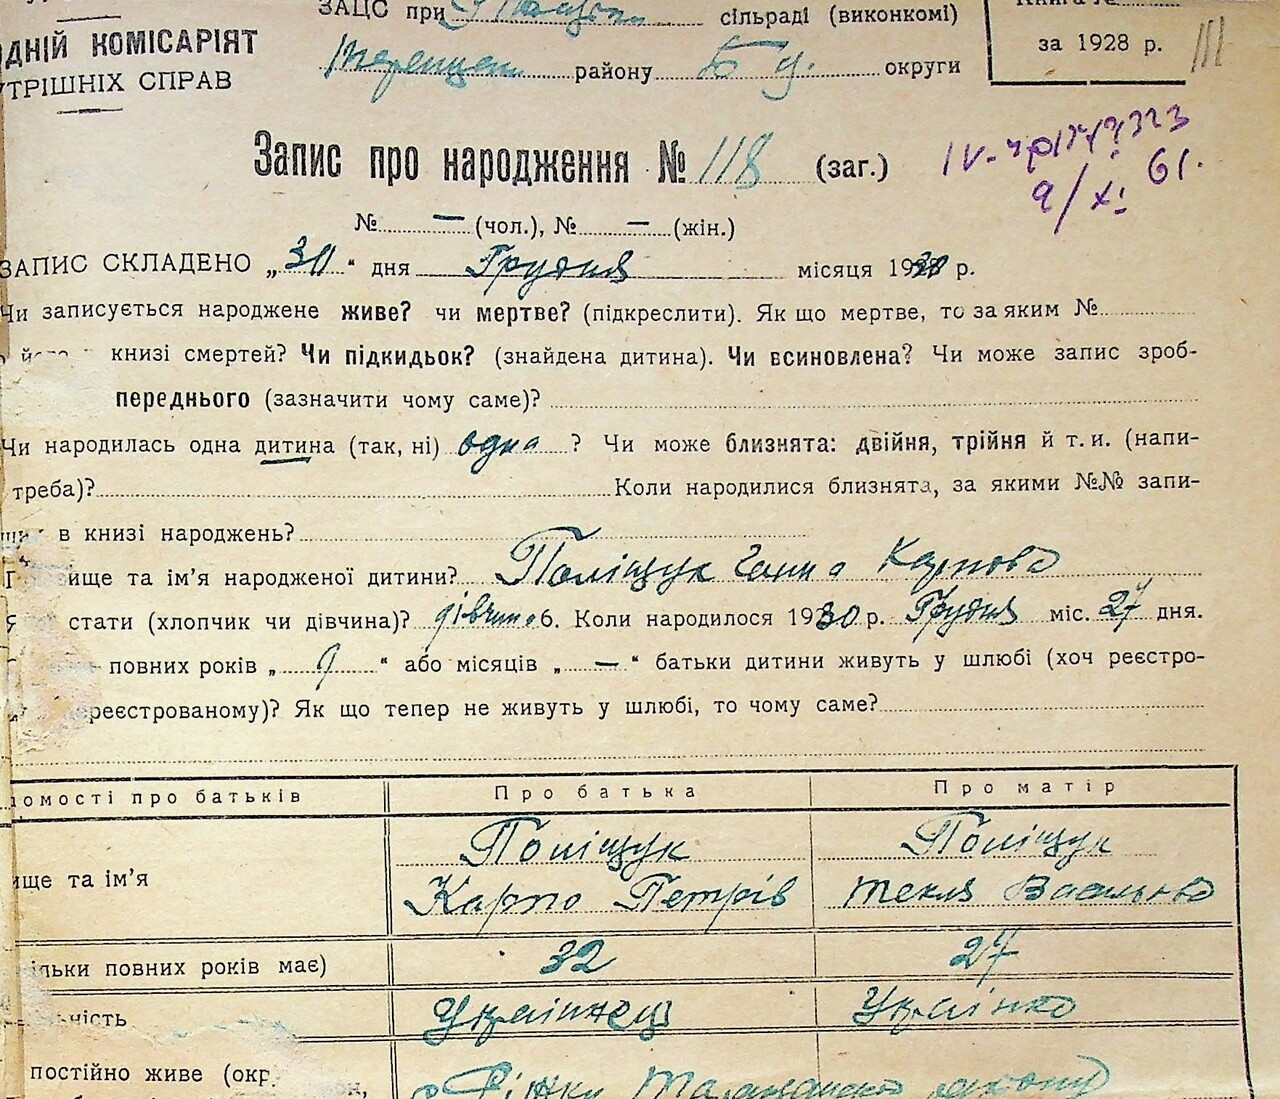 ЗАЦС при сільраді (виконкомі)
Книга №
ОДНІЙ КОМІСАРІЯТ
району Б ц. округи
за 1928 р.
III
УТРІШНІХ СПРАВ
Запис про народження № 118 (заг.)
9/XI 61.
№ — (чол.), № — (жін.)
ЗАПИС СКЛАДЕНО „30" дня Грудня місяця 1930 р.
Чи записується народжене живе? чи мертве? (підкреслити). Як що мертве, то за яким №
книзі смертей? Чи підкидьок? (знайдена дитина). Чи всиновлена? Чи може запис зроб-
переднього (зазначити чому саме)?
Чи народилась одна дитина (так, ні) одна ? Чи може близнята: двійня, трійня й т. и. (напи-
треба)? Коли народилися близнята, за якими №№ запи-
в книзі народжень?
ище та ім'я народженої дитини? Поліщук Ганна Карпова
стати (хлопчик чи дівчина)? дівчина 6. Коли народилося 1930 р. Грудня міс. 27 дня.
повних років „ 9 " або місяців „ — " батьки дитини живуть у шлюбі (хоч реєстро-
реєстрованому)? Як що тепер не живуть у шлюбі, то чому саме?
домості про батьків Про батька Про матір
Поліщук Поліщук
ище та ім'я Карпо Петрів Текля Васильєва
ільки повних років має) 32 27
ьність Українець Українка
постійно живе (окр.